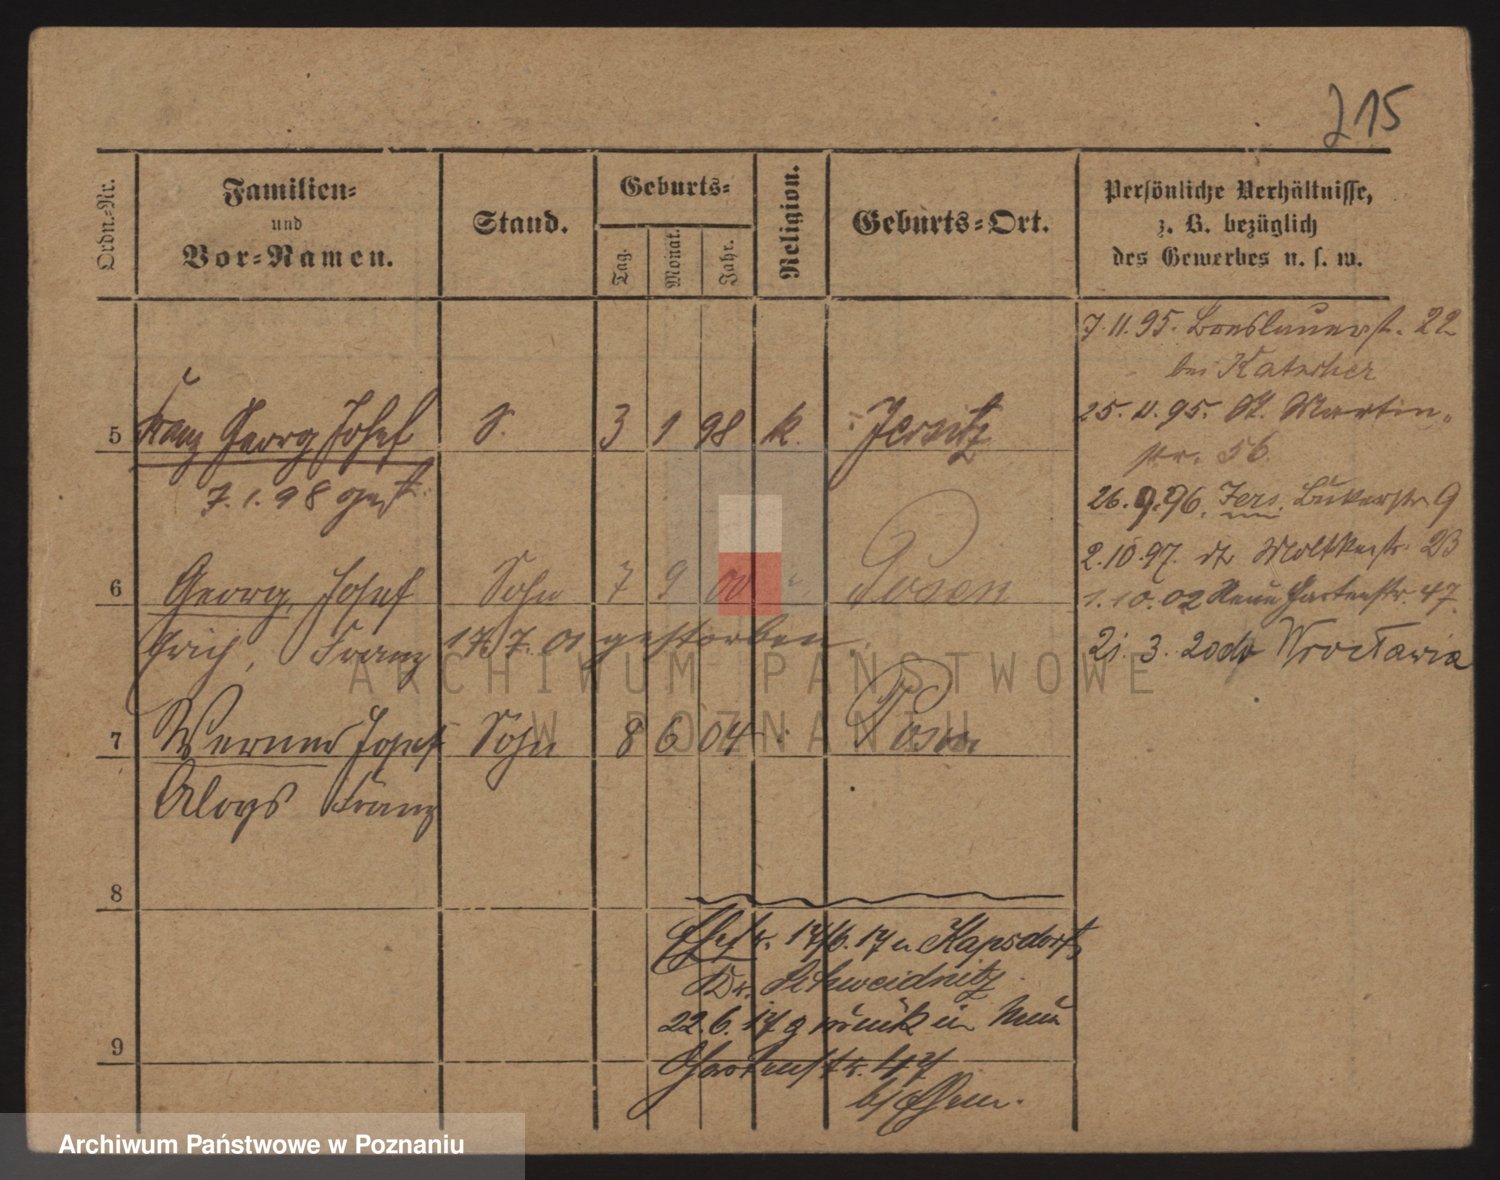 215
Ordn.-Nr.
Familien-
und
Vor-Namen.
Stand.
Geburts-
Tag.
Monat.
Jahr.
Religion.
Geburts-Ort.
Persönliche Verhältnisse,
z. B. bezüglich
des Gewerbes u. s. w.
7.11.95. Breslauerst. 22
bei Katscher
25. 11. 95. St. Martin-
str. 56
26.9.96. Jers. Bukerstr 9
2.10.97. Moltkestr. 23
1.10.02 Neue Gartenstr. 47.
21. 3. 20 do Wrocławia
5 Franz Georg Josef S. 3 1 98 k. Jersitz
7.1.98 gest
6 Georg, Josef Sohn 7 9 00 Posen
Erich, Franz 17.7.01 gestorben.
7 Werner Josef Sohn 8 6 04 Posen
Aloys Franz
8
Ehefr. 14/6.17 n Kapsdorf,
Kr. Schweidnitz
22.6.17 zurück in Neue
9
Gartenstr. 47
b/ Ehem.
ARCHIWUM PAŃSTWOWE
W POZNANIU
Archiwum Państwowe w Poznaniu